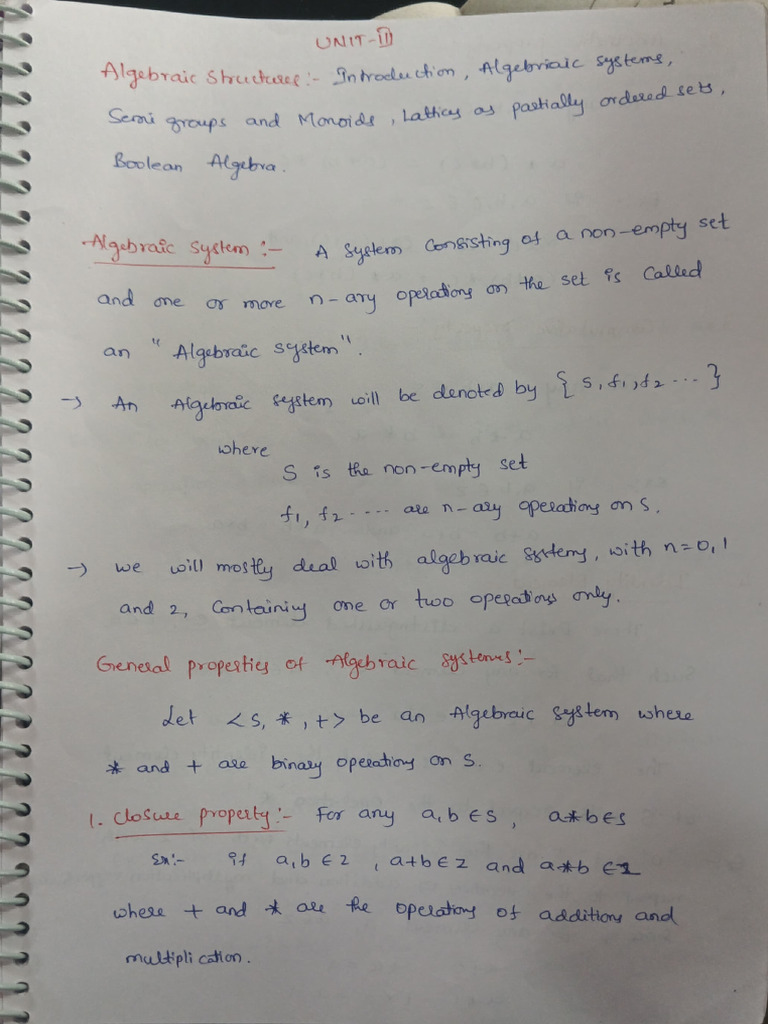 UNIT-II
Algebraic Structures:- Introduction, Algebriaic systems,
Semi groups and Monoids, Lattices as partially ordered sets,
Boolean Algebra.
Algebraic System :- A System Consisting of a non-empty set
and one or more n-ary operations on the set is Called
an "Algebraic system".
→ An Algebraic system will be denoted by { S, f1, f2 ... }
where
S is the non-empty set
f1, f2 ..... are n-ary operations on S.
→ we will mostly deal with algebraic systems, with n=0,1
and 2, Containing one or two operations only.
General properties of Algebraic systems:-
Let <S, *, +> be an Algebraic system where
* and + are binary operations on S.
1. Closure property:- For any a, b ∈ S, a*b∈S
Ex:- if a, b ∈ Z, a+b ∈ Z and a*b ∈ Z
where + and * are the operations of additions and
multiplication.